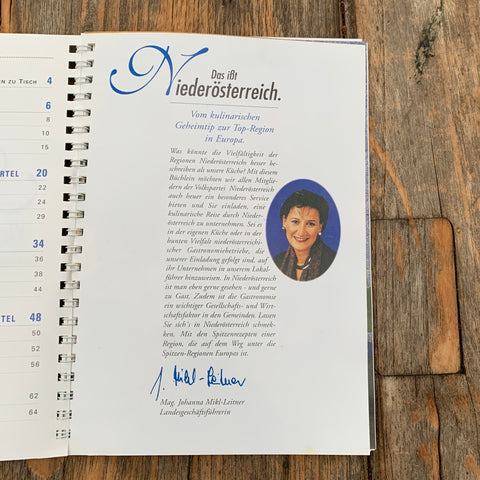 EN ZU TISCH 4
6
8
10
15
RTEL 20
22
24
29
34
36
38
44
TEL 48
50
56
62
64
Das ißt
Niederösterreich.
Vom kulinarischen
Geheimtip zur Top-Region
in Europa.
Was könnte die Vielfältigkeit der
Regionen Niederösterreich besser be-
schreiben als unsere Küche! Mit diesem
Büchlein möchten wir allen Mitglie-
dern der Volkspartei Niederösterreich
auch heuer ein besonderes Service
bieten und Sie einladen, eine
kulinarische Reise durch Nieder-
österreich zu unternehmen. Sei es
in der eigenen Küche oder in der
bunten Vielfalt niederösterreichi-
scher Gastronomiebetriebe, die
unserer Einladung gefolgt sind, auf
ihr Unternehmen in unserem Lokal-
führer hinzuweisen. In Niederösterreich
ist man eben gerne gesehen - und gerne
zu Gast. Zudem ist die Gastronomie
ein wichtiger Gesellschafts- und Wirt-
schaftsfaktor in den Gemeinden. Lassen
Sie sich's in Niederösterreich schmek-
ken. Mit den Spitzenrezepten einer
Region, die auf dem Weg unter die
Spitzen-Regionen Europas ist.
J. Mikl-Leitner
Mag. Johanna Mikl-Leitner
Landesgeschäftsführerin